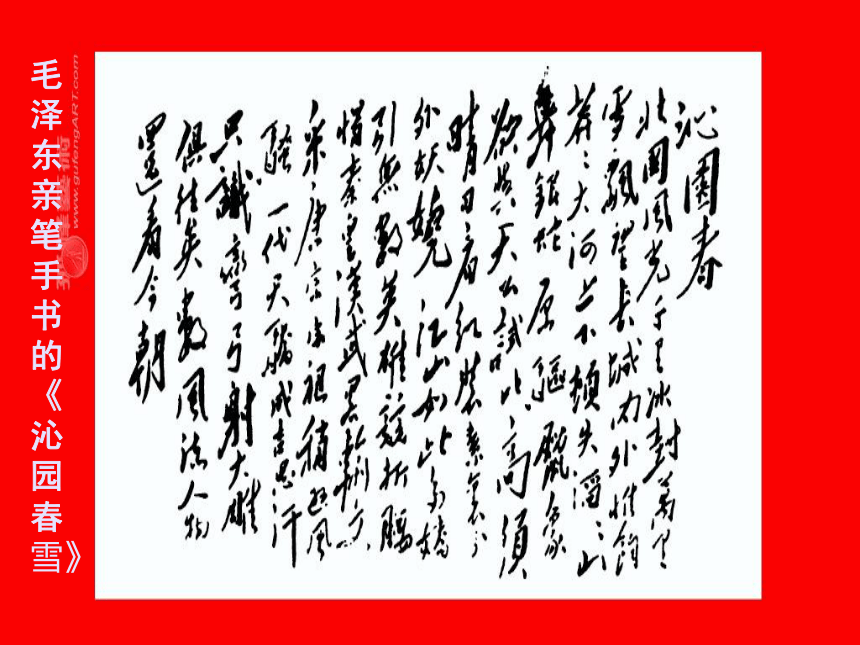 毛泽东亲笔手书的《沁园春雪》
沁園春
北國風光千里冰封萬里
雪飄望長城内外惟餘
莽莽大河上下頓失滔滔山
舞銀蛇原驅臘象
欲與天公試比高須
晴日看紅裝素裹分
外妖嬈江山如此多嬌
引無數英雄競折腰
惜秦皇漢武略輸文
采唐宗宋祖稍遜風
騷一代天驕成吉思汗
只識彎弓射大雕
俱往矣數風流人物
還看今朝
www.gufengART.com